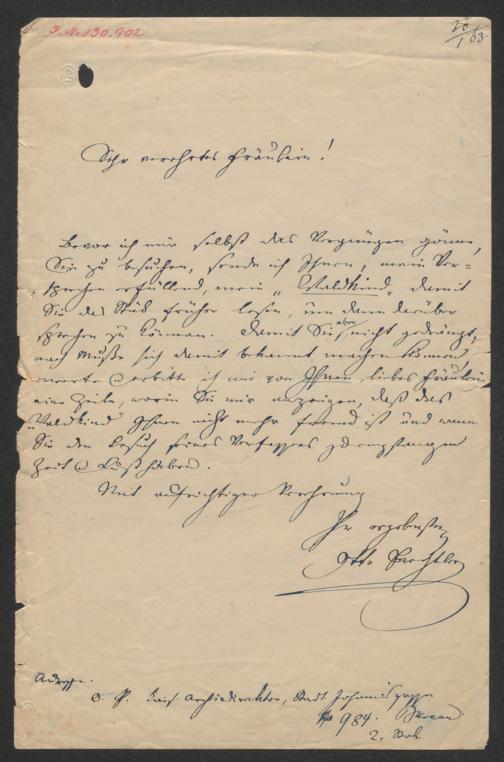 I.N.130.902
30/1 63.
Sehr verehrtes Fräulein!
Bevor ich mir selbst das Vergnügen gönne,
Sie zu besuchen, sende ich Ihnen, mein Ver=
sprechen erfüllend, mein „Waldkind", damit
Sie das Stück früher lesen, um dann darüber
sprechen zu können. Damit Sie aber nicht gedrängt,
nach Muße sich damit bekannt machen können
erbitte ich mir von Ihnen, liebes Fräulein
eine Zeile, worin Sie mir anzeigen, daß das
„Waldkind" Ihnen nicht mehr fremd ist und wann
Sie den Besuch seines Verfassers zu empfangen
Zeit & Lust haben.
Mit aufrichtiger Verehrung
Ihr ergebenster
Otto Prechtler
Adresse.
O. P. kais. Archivdirektor, Stadt Johannesgasse
984.
2. Stock